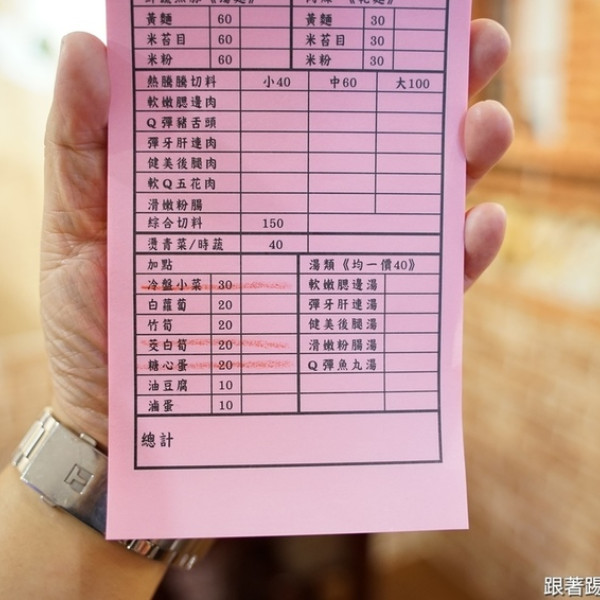 黃麵 60 黃麵 30
米苔目 60 米苔目 30
米粉 60 米粉 30
熱騰騰切料 小40 中60 大100
軟嫩腮邊肉
Q彈豬舌頭
彈牙肝連肉
健美後腿肉
軟Q五花肉
滑嫩粉腸
綜合切料 150
燙青菜/時蔬 40
加點 湯類《均一價40》
冷盤小菜 30 軟嫩腮邊湯
白蘿蔔 20 彈牙肝連湯
竹筍 20 健美後腿湯
茭白筍 20 滑嫩粉腸湯
糖心蛋 20 Q彈魚丸湯
油豆腐 10
滷蛋 10
總計
跟著踢